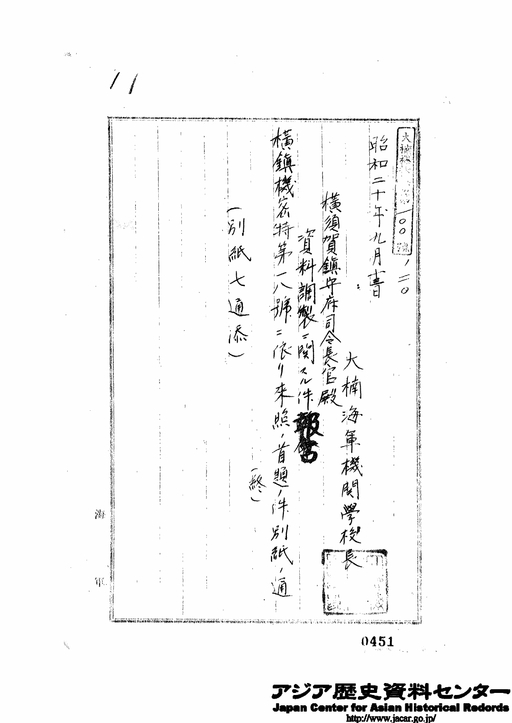 11
大楠機 第一〇〇號ノ二〇
昭和二十年九月
大楠海軍機関學校長
横須賀鎮守府司令長官殿
資料調製ニ関スル件報告
横鎮機密特第一八號ニ依リ来照ノ首題ノ件別紙ノ通
(終)
(別紙七通添)
海軍
0451
アジア歴史資料センター
Japan Center for Asian Historical Redords
http://www.jacar.go.jp/